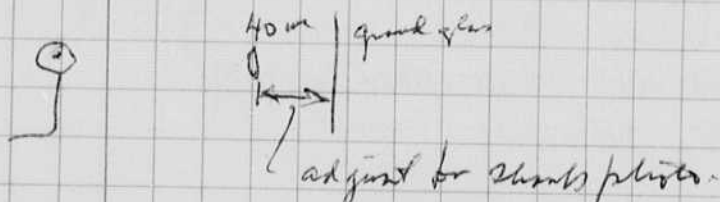 40 cm ground glass
adjust for sharp photo.